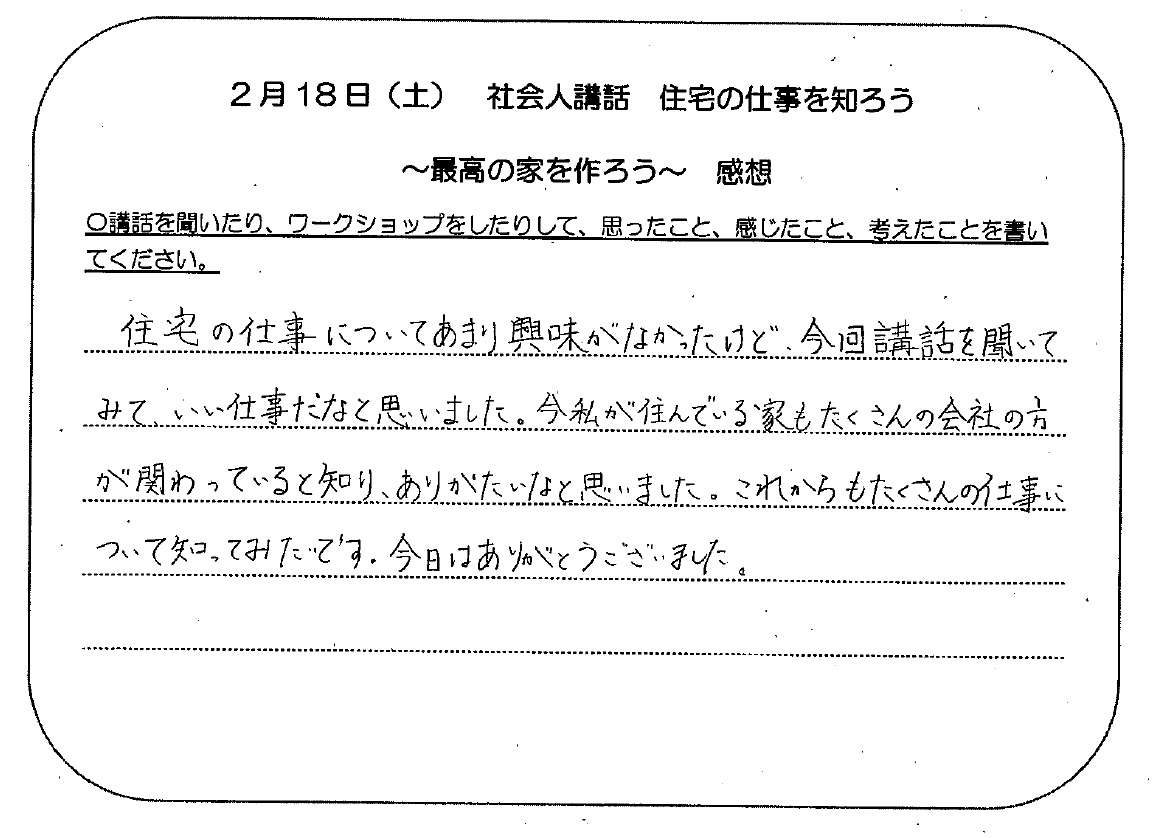 2月18日（土）　社会人講話　住宅の仕事を知ろう
～最高の家を作ろう～　感想
〇講話を聞いたり、ワークショップをしたりして、思ったこと、感じたこと、考えたことを書い
てください。
住宅の仕事についてあまり興味がなかったけど、今回講話を聞いて
みて、いい仕事だなと思いました。今私が住んでいる家もたくさんの会社の方
が関わっていると知り、ありがたいなと思いました。これからもたくさんの仕事に
ついて知ってみたいです。今日はありがとうございました。